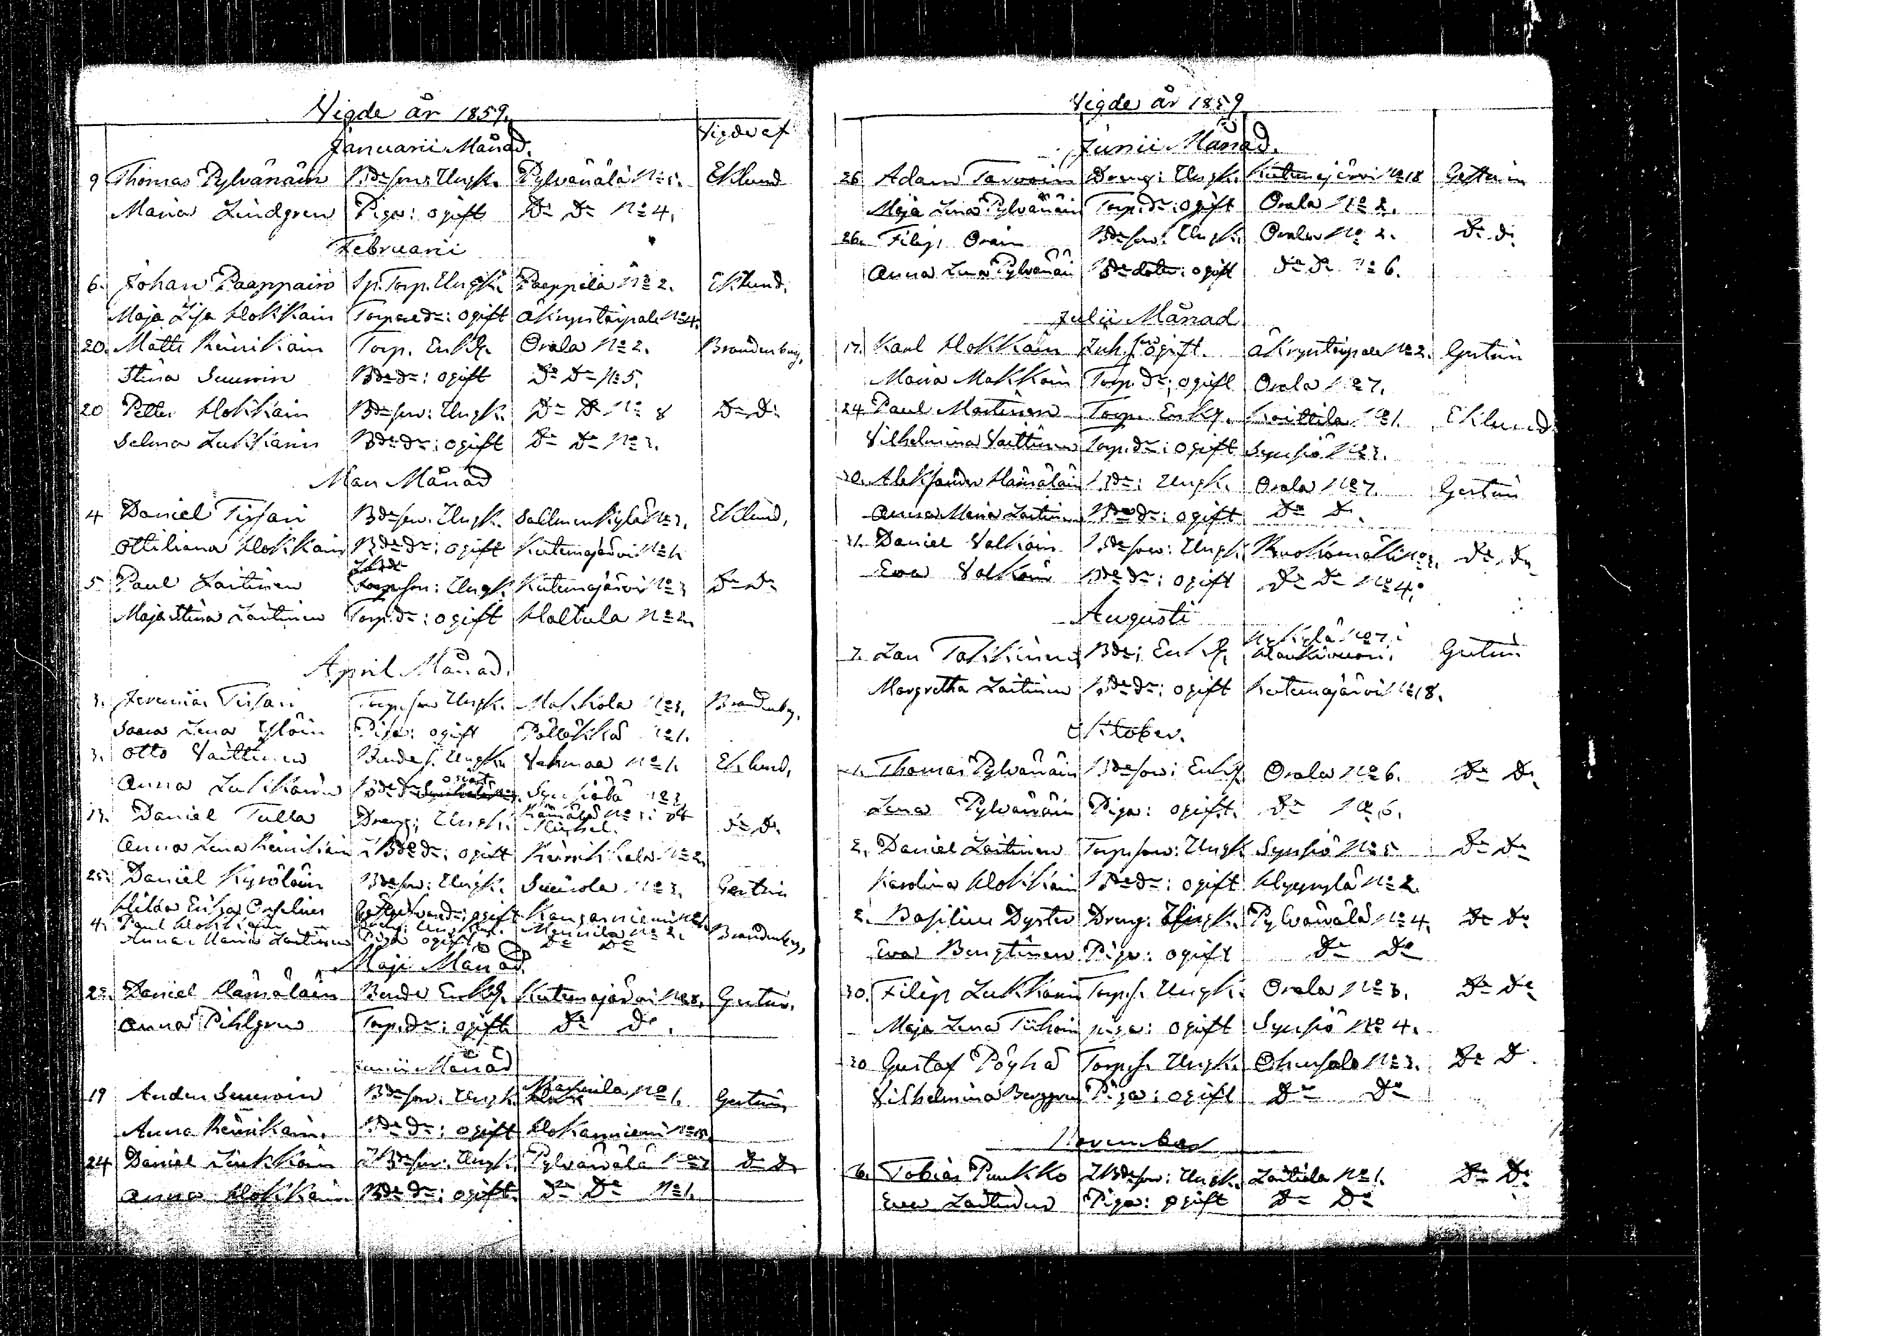 Vigde år 1859.
Vigde af
Januarii Månad.
9 Thomas Pylvänäin Bdeson: Ungk. Pylvänälä No 5. Eklund
Maria Lindgren Piga: ogift Do Do No 4.
Februarii
6. Johan Paappain Sp. Torp. Ungk: Paappila No 2. Eklund.
Maja Lisa Hokkain Torparedr: ogift Åkrystaipale No 4.
20. Matts Reinikain Torp. Enkl. Orala No 2. Brandenburg,
Stina Suuroin Bdedr: ogift Do Do No 5.
20 Petter Hokkain Bdeson: Ungk. Do Do No 8 Do Do
Selma Lukkarin Bdedr: ogift Do Do No 2.
Mars Månad
4 Daniel Tissari Bdeson. Ungk. Sallmenkylä No 3. Eklund,
Ottiliana Hokkain Bdedr: ogift Kutemajärvi No 1.
5. Paul Laitinen Torpson: Ungk. Kutemajärvi No 3 Do Do
Maja Stina Laitinen Torp.dr: ogift Haltula No 2.
April Månad.
3. Jeremias Tissari Torpson Ungk. Makkola No 3. Brandenbg.
Lena Ylöin Piga: ogift Pällökkä No 1.
3. Otto Vaittinen Bondes. Ungk. Vehmaa No 1. Eklund,
Anna Lukkarin Bdedr Synsiälä No 3
17. Daniel Tulla Dreng; Ungk. No 1. Do Do.
Anna Lena Reinikain Bdedr: ogift Reinikkala No 2.
25. Daniel Kyröläin Bdeson: Ungk. Suurola No 3. Gestrin
ogift Kangasniemi
4. Paul Hokkain Ungk. Mannila No 2. Brandenbg,
Anna Maria Laitinen Piga ogift Do Do
Maji Månad
22. Daniel Hämäläin Bonde Enkl. Kutemajärvi No 8. Gestrin.
Anna Pihlgren Torp.dr: ogift Do Do.
Junii Månad
19 Anders Suuroin Bdeson. Ungk. No 1. Gestrin
Anna Reinikain. Bdedr: ogift Hokanniemi No 18
24 Daniel Liukkoin Bdeson: Ungk. Pylvänälä No 7 Do Do
Anna Hokkain Bdedr: ogift. Do Do No 1.
Vigde år 1859
Junii Månad.
26 Adam Tarvoin Dreng: Ungk. Kutemajärvi No 18 Gestrin
Maja Lena Pylvänäin Torp.dr: ogift Orala No 2.
26. Filip Orain Bdeson: Ungk. Orala No 2. Do Do
Anna Lena Pylvänäin Bdedotr: ogift Do Do No 6.
Julii Månad
17. Karl Hokkain ogift. Åkrystaipale No 2. Gestrin
Maria Makkoin Torp.dr: ogift Orala No 7.
24 Paul Martinen Torp. Enkl. Koittila No 1. Eklund
Vilhelmina Vaittinen Torp.dr: ogift Synsiö No 3.
Aleksander Hämäläin Bde: Ungk. Orala No 7. Gestrin
Anna Maria Laitinen Bdedr: ogift Do Do.
31. Daniel Valkoin Bdeson: Ungk. Ruokomäki Do Do
Eva Valkoin Bdedr: ogift Do Do No 4.
Augusti
7. Zan Takkinen Bde: Enkl. Haukivuori. Gestrin
Margretha Laitinen Bdedr: ogift Kutemajärvi No 18.
Oktober.
1. Thomas Pylvänäin Bdeson: Enkl. Orala No 6. Do Do
Lena Pylvänäin Piga: ogift. Do No 6.
2. Daniel Laitinen Torpson: Ungk Synsiö No 5 Do Do
Karolina Hokkain Bdedr: ogift Hyyrylä No 2.
2. Basilius Dyster Dreng. Ungk. Pylvänälä No 4. Do Do
Eva Bengtinen Piga: ogift Do Do
30. Filip Lukkarin Torps. Ungk. Orala No 3. Do Do
Maja Lena Tiihoin piga: ogift Synsiö No 4.
30 Gustaf Pöyhö Torps. Ungk. Ohensalo No 3. Do Do.
Vilhelmina Berggren Piga: ogift Do Do
November
6. Tobias Punkko Bdeson: Ungk. Laitiala No 1. Do Do
Eva Laitinen Piga: ogift Do Do